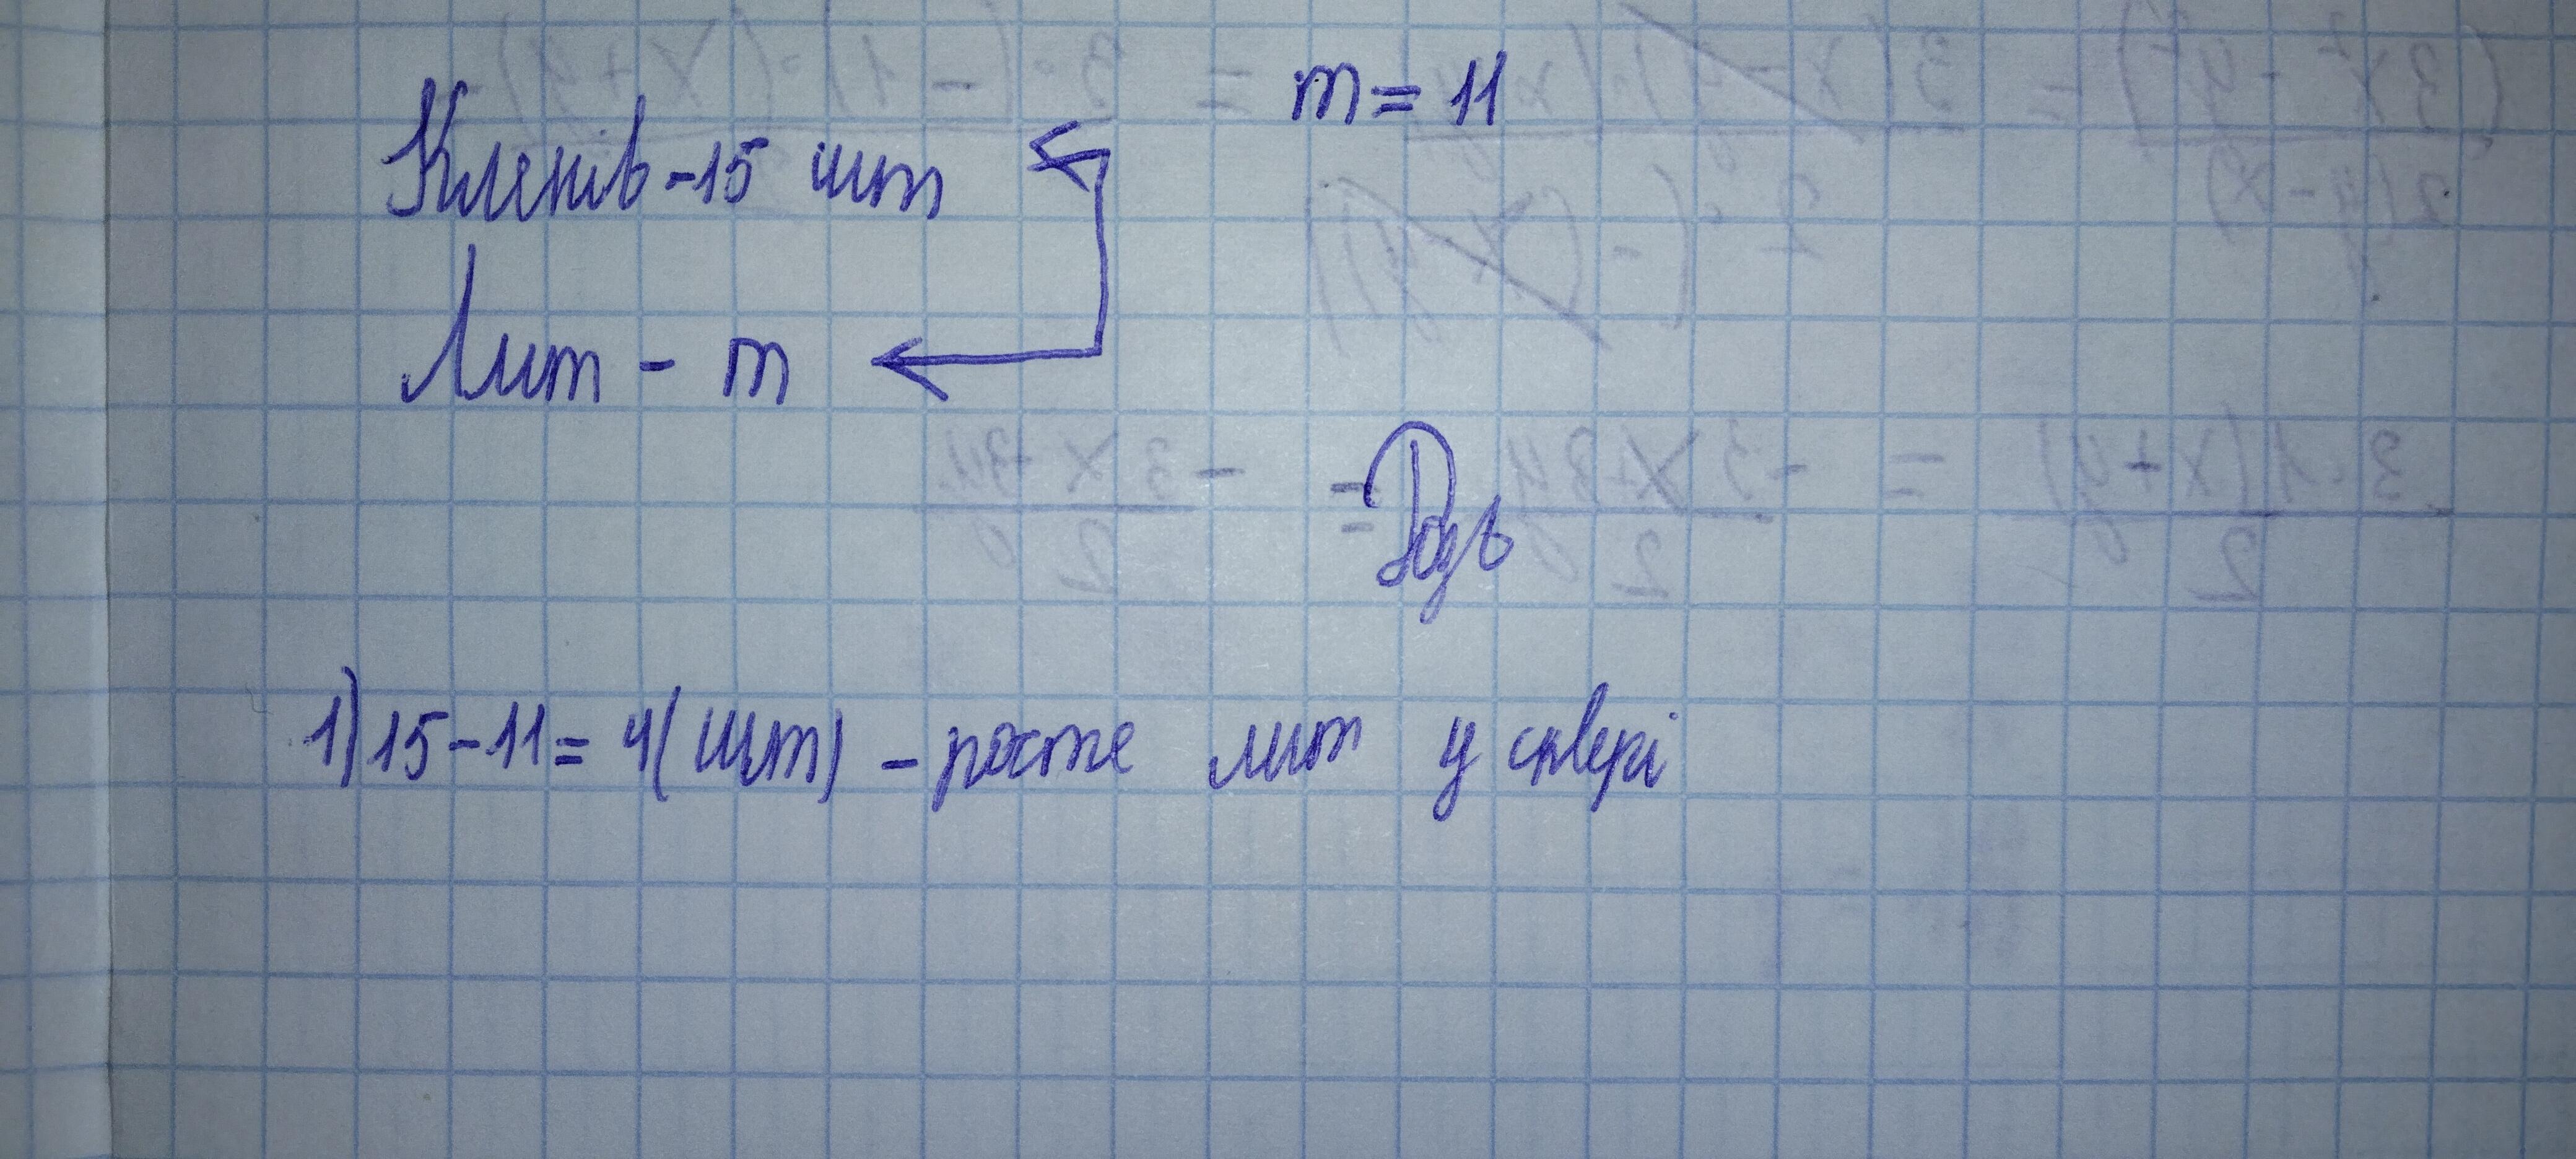 m = 11
Кленів - 15 шт
Лип - m
Розв
1) 15 - 11 = 4 (шт) - росте лип у сквері